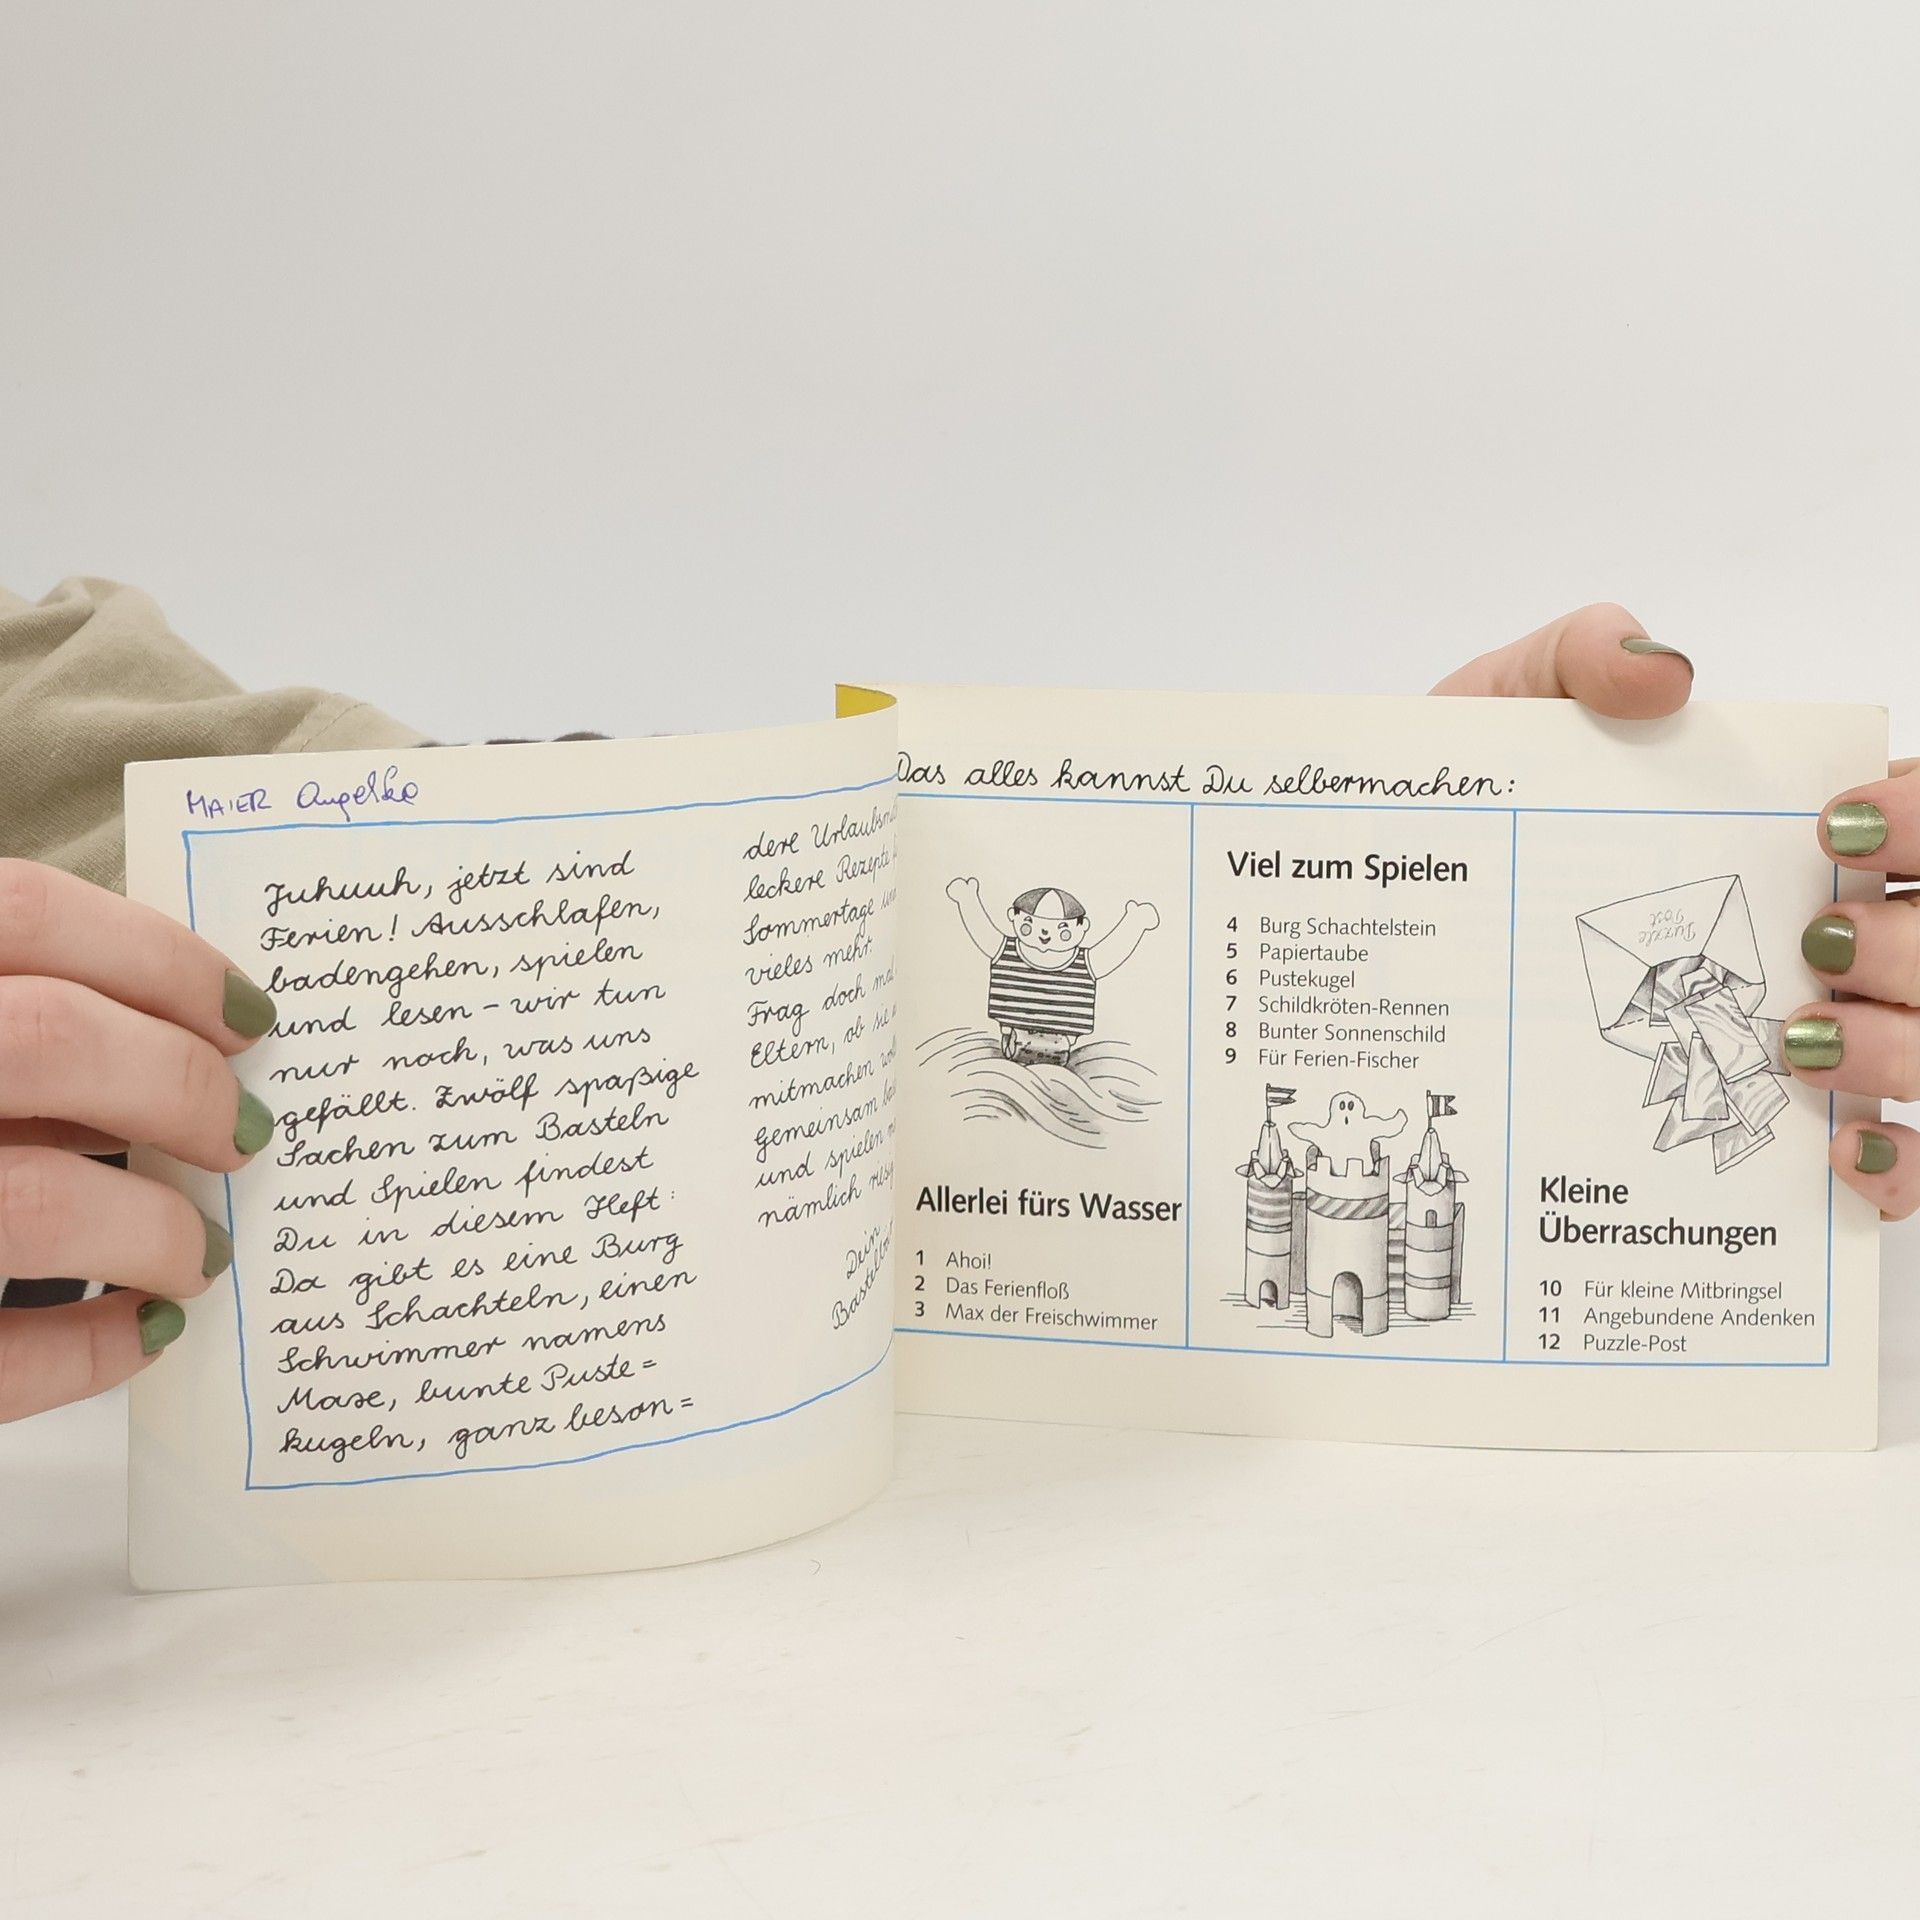 MAIER Angelka
Juhuuh, jetzt sind
Ferien! Ausschlafen,
badengehen, spielen
und lesen – wir tun
nur noch, was uns
gefällt. Zwölf spaßige
Sachen zum Basteln
und Spielen findest
Du in diesem Heft:
Da gibt es eine Burg
aus Schachteln, einen
Schwimmer namens
Maxe, bunte Puste=
kugeln, ganz beson=
dere
leckere Rezepte
Sommertage
vieles mehr.
Frag doch mal
Eltern, ob sie
mitmachen
Gemeinsam
und spielen
nämlich
Dein
Das alles kannst Du selbermachen:
Allerlei fürs Wasser
1 Ahoi!
2 Das Ferienfloß
3 Max der Freischwimmer
Viel zum Spielen
4 Burg Schachtelstein
5 Papiertaube
6 Pustekugel
7 Schildkröten-Rennen
8 Bunter Sonnenschild
9 Für Ferien-Fischer
Puzzle
Post
Kleine
Überraschungen
10 Für kleine Mitbringsel
11 Angebundene Andenken
12 Puzzle-Post